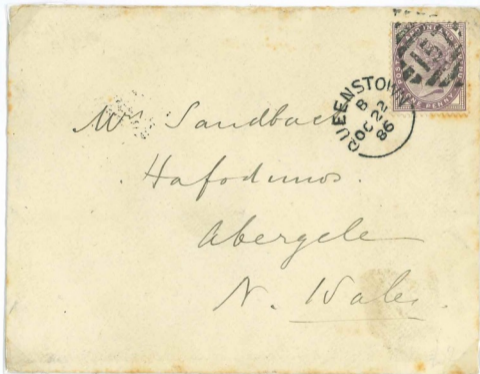 ONE PENNY
15
QUEENSTOWN
B
OC 22
86
Mrs Sandbac
Hafodunos.
Abergele
N. Wales.